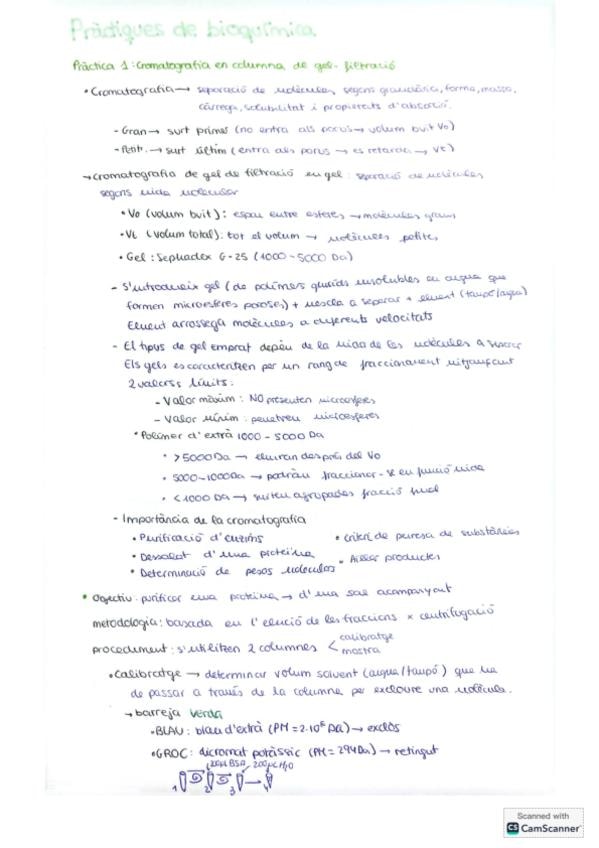 Pràctiques de bioquímica
Pràctica 1: Cromatografia en columna de gel-filtració
• Cromatografia → separació de molècules, segons grandària, forma, massa,
càrrega, solubilitat i propietats d'absorció.
- Gran → surt primer (no entra als porus → volum buit Vo)
- Petit → surt últim (entra als porus → es retarda → Vt)
→ cromatografia de gel de filtració en gel: separació de molècules
segons mida molecular
• Vo (volum buit): espai entre esferes → molècules grans
• Vt (volum total): tot el volum → molècules petites
• Gel: Sephadex G-25 (1000-5000 Da)
- S'introdueix gel (de polímers glucids insolubles en aigua que
formen microesferes poroses) + mescla a separar + eluent (tampó/aigua)
Eluent arrossega molècules a diferents velocitats
- El tipus de gel emprat depèn de la mida de les molècules a separar
Els gels es caracteritzen per un rang de fraccionament mitjançant
2 valors límits:
- Valor màxim: NO presenten microesferes
- Valor mínim: penetren microesferes
• Polímer d'extrà 1000-5000 Da
• >5000 Da → eluiran després del Vo
• 5000-1000 Da → podran fraccionar-se en funció mida
• <1000 Da → surten agrupades fracció final
- Importància de la cromatografia
• Purificació d'enzims • Criteri de puresa de substàncies
• Dessalat d'una proteïna • Aïllar productes
• Determinació de pesos moleculars
• Objectiu: purificar una proteïna → d'una sal acompanyant
metodologia: basada en l'elució de les fraccions x centrifugació
procediment: s'utilitzen 2 columnes < calibratge
mostra
• Calibratge → determinar volum solvent (aigua/tampó) que ha
de passar a través de la columna per excloure una molècula.
→ barreja verda
• BLAU: blau d'extrà (PM = 2·10⁶ Da) → exclòs
• GROC: dicromat potàssic (PM = 294 Da) → retingut
20µL BSA, 200µL H₂O
1 2 3
Scanned with
CS CamScanner